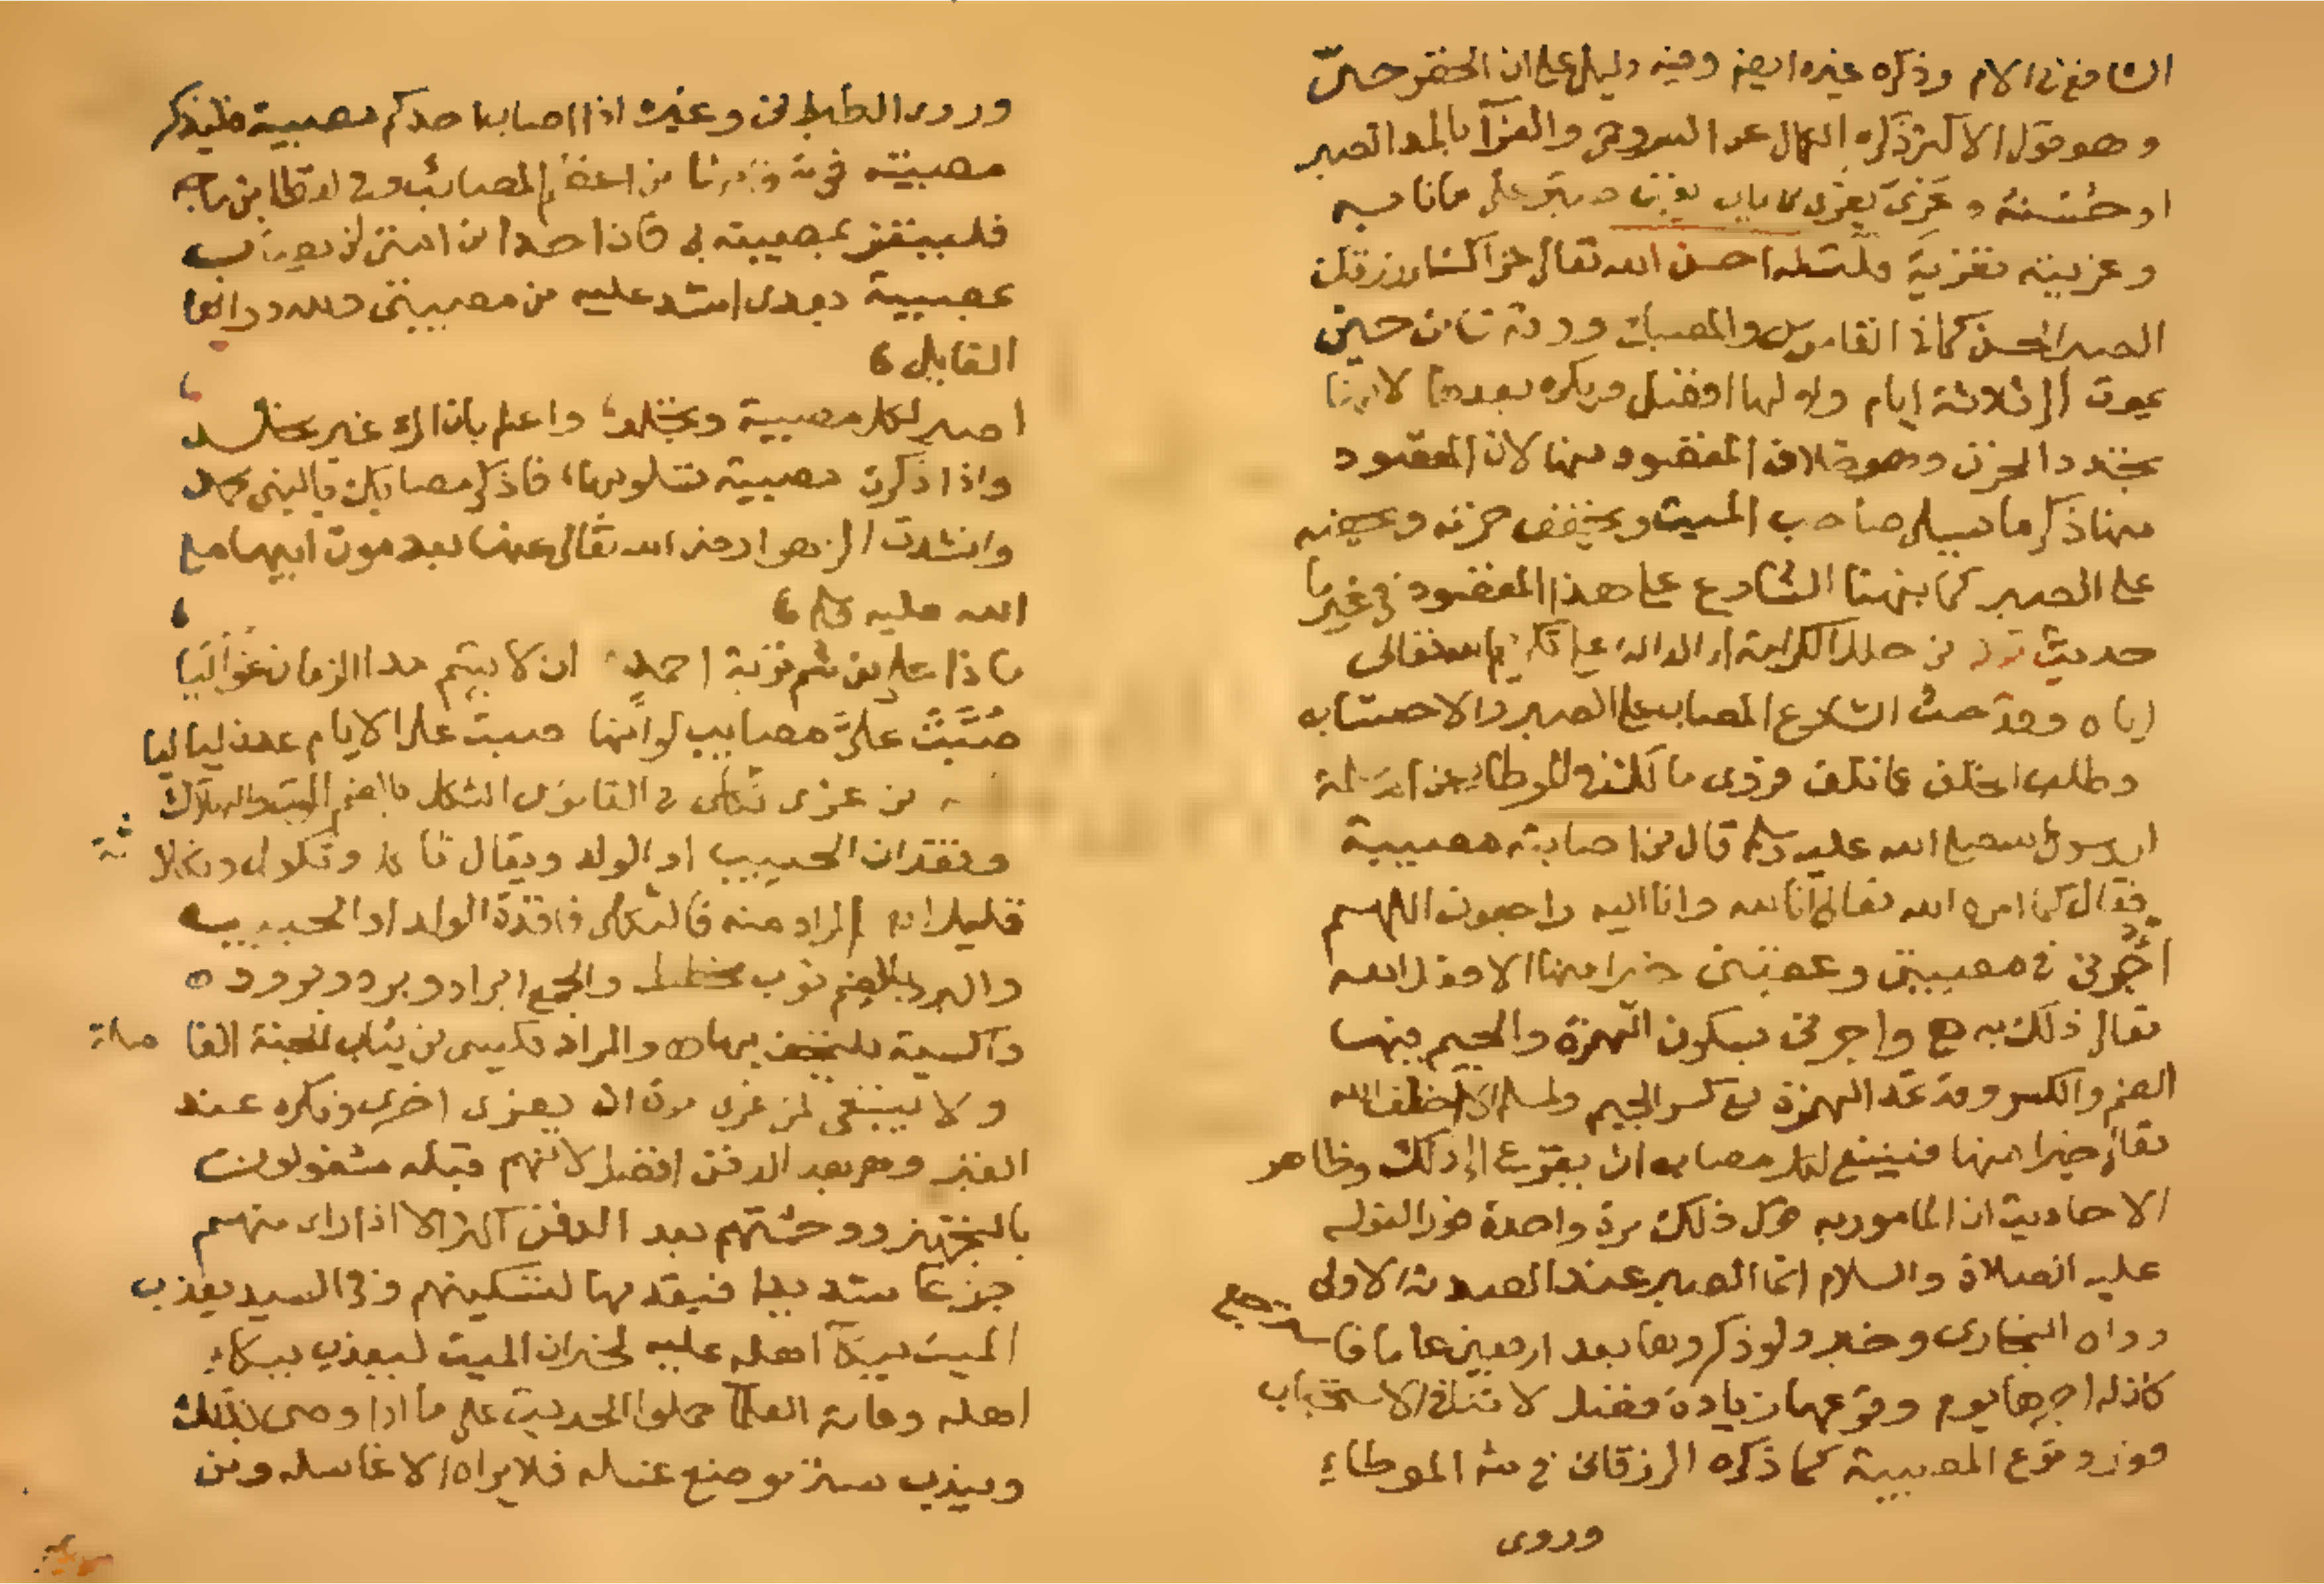 الشافعي في الام وذكره غيره ايضا وفيه دليل على ان الخضر حيّ
وهو قول الاكثر ذكره الكمال والعزآ بالمد الصبر
او حسنه وعَزِيَ يعزى من باب صبر على ما نابه
وعزيته تعزية قلت له احسن الله تعالى عزاك اي رزقك
الصبر الحسن كما في القاموس والمصباح ووقته من حين
يموت الى ثلاثة ايام واولها افضل ويكره بعدها لانها
تجدد الحزن وهو خلاف المقصود منها لان المقصود
منها ذكر ما يسلى صاحب الميت ويخفف حزنه ويحضه
على الصبر كما نبهنا الشارع على هذا المقصود في غير ما
حديث من حلل الكرامة اى الدالة على تعالى
اياه وقد حث الشارع المصاب على الصبر والاحتساب
وطلب الخلف عما تلف فروى مالك في الموطا عن ام سلمة
ان رسول الله صلى الله عليه وسلم قال من اصابته مصيبة
فقال كما امره الله تعالى انا لله وانا اليه راجعون اللهم
أجُرني في مصيبتي وعقبني خيرا منها الا فعل الله
تعالى ذلك به واجرني بسكون الهمزة والجيم فيها
الضم والكسر وقد تمد الهمزة مع كسر الجيم ولمسلم الا اخلف الله
تعالى خيرا منها فينبغي لكل مصاب ان يفزع الى ذلك وظاهر
الاحاديث ان المامور به قول ذلك مرة واحدة فورا لقوله
عليه الصلاة والسلام انما الصبر عند الصدمة الاولى
رواه البخارى وخبر ولو ذكرها بعد اربعين عاما فاسترجع
كان له اجرها يوم وقوعها زيادة فضل لا تنافى الاستحباب
فور وقوع المصيبة كما ذكره الزرقانى في شرح الموطاء
وروى
وروى الطبراني وغيره اذا اصاب احدكم مصيبة فليذكر
مصيبته في فانها من اعظم المصائب وفي لفظ ابن ماجه
فليتعز بمصيبته بي فان احدا من امتى لن يصاب
بمصيبة بعدى اشد عليه من مصيبتى ولله در
القايل
اصبر لكل مصيبة وتجلد واعلم بان المرء غير مخلد
واذا ذكرت مصيبة تسلو بها فاذكر مصابك بالنبي محمد
وانشدت الزهرا رضى الله تعالى عنها بعد موت ابيها صلى
الله عليه وسلم
ماذا على من شم تربة احمد ان لا يشم مدا الزمان غواليا
صُبَّتْ عليَّ مصايب لو انها صبت على الايام عدن لياليا
من عزى ثكلى في القاموس الثكل بالضم الموت والهلاك
وفقدان الحبيب او الولد ويقال
قليلا المراد منه فالثكلى فاقدة الولد او الحبيب
والبرد بالضم ثوب مخطط والجمع ابراد وبرد وبرود
واكسية يلتحف بها والمراد كسى من ثياب الجنة
ولا ينبغى لمن عزى مرة ان يعزى اخرى وتكره عند
القبر وهى بعد الدفن افضل لانهم قبله مشغولون
بالتجهيز ووحشتهم بعد الدفن اكثر الا اذا راى منهم
جزعا شديدا فيقدمها لتسكينهم وفي السيد يعذب
الميت ببكآ اهله عليه لخبر ان الميت ليعذب ببكاء
اهله وعامة العلمآ حملوا الحديث على ما اذا وصى بذلك
ويندب ستر موضع غسله فلا يراه الا غاسله ومن